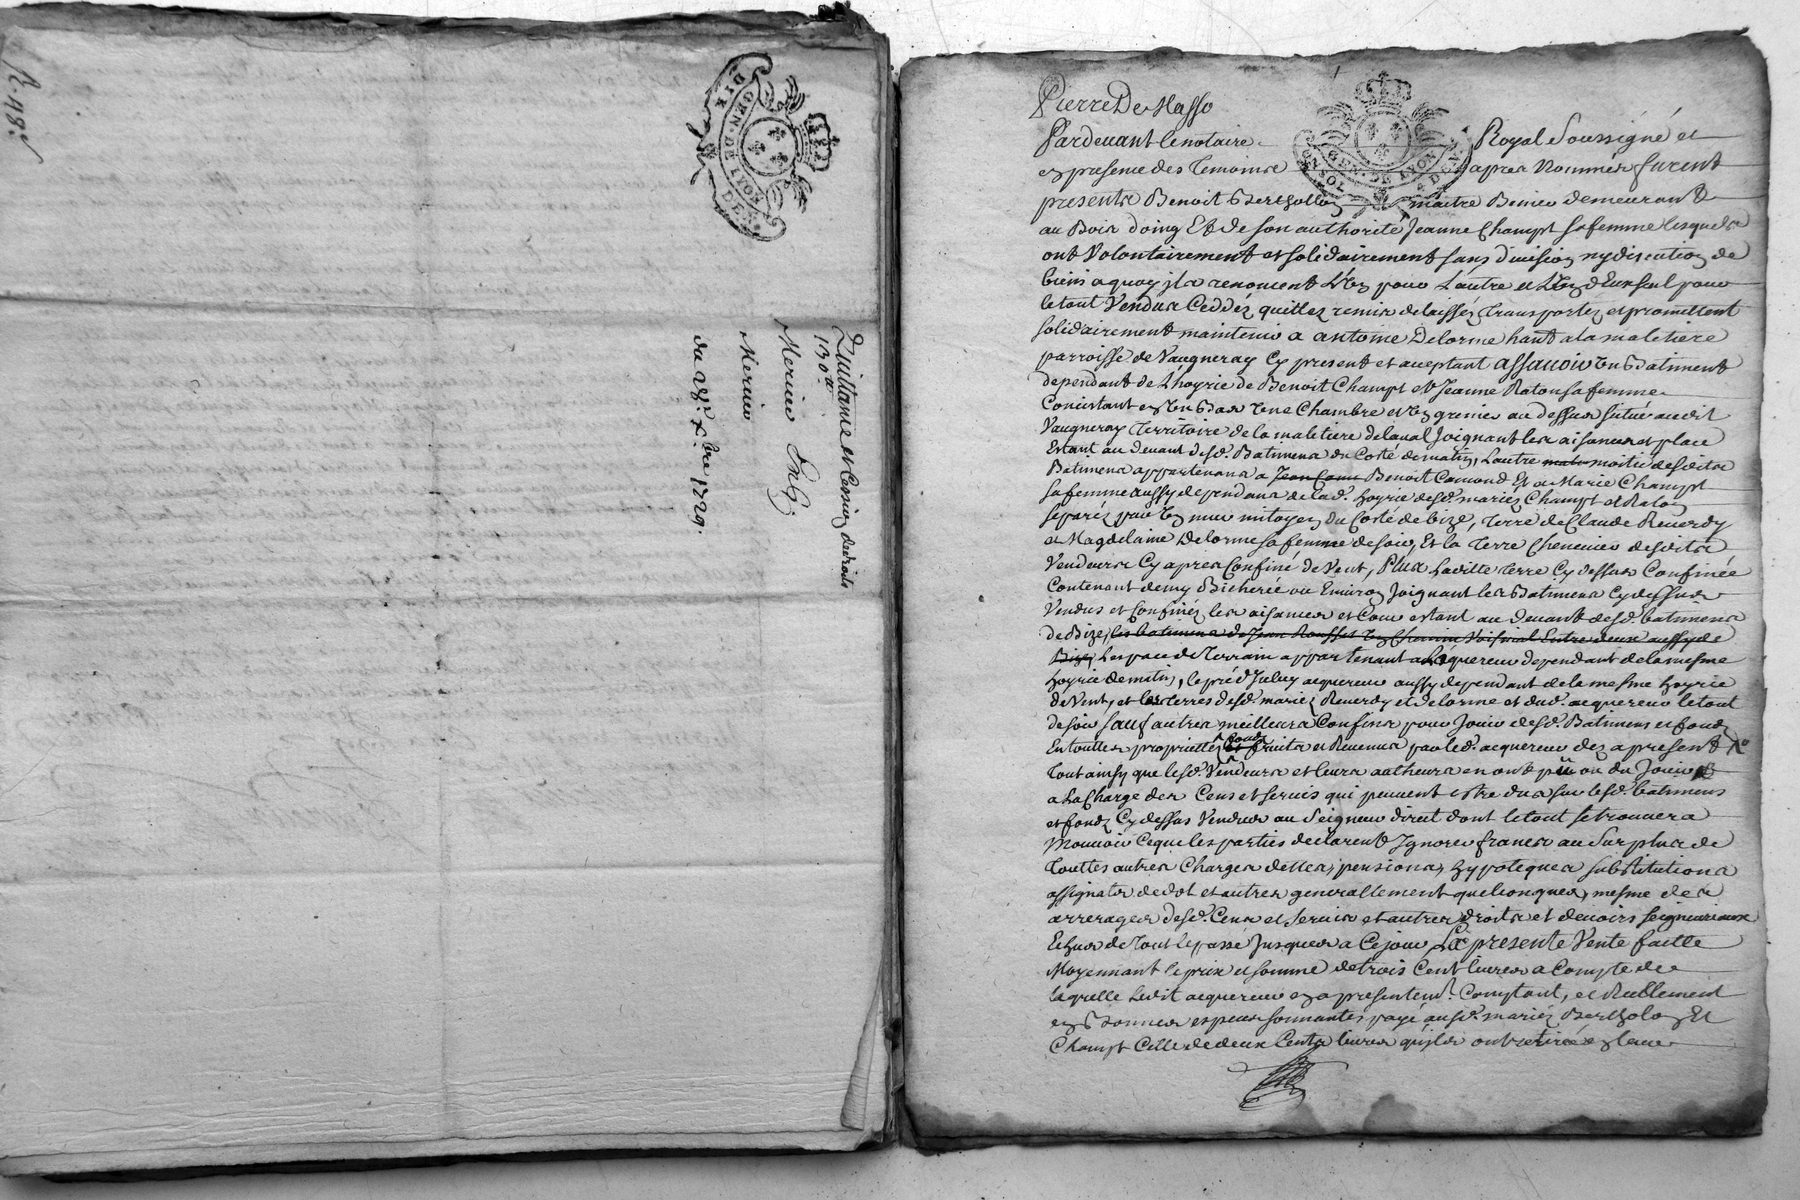 R. 48.
GEN. DE LYON
Quittance et Cession de droits
130ᵗᵗ
Mercier
Mercier
du 1729.
GEN. DE LYON
Pierre De Masso
Pardevant le notaire Royal Soussigné et
en presence des Temoins apres Nommés furent
presents Benoit Berthollon maitre demeurant
au Bois doing Et de son authorité Jeanne Champt sa femme lesquels
ont Volontairement et solidairement sans division ny discution de
biens a quoy ils renoncent L'un pour Lautre et L'un d'Eux seul pour
le tout Vendus Ceddéz quittez remis delaissez transportez et promettent
solidairement maintenir a antoine Delorme a la maletiere
parroisse de Vaugneray Cy present et acceptant assavoir un Batiment
dependant de L'hoyrie de Benoit Champt et Jeanne Raton sa femme
Concistant en un Bas Une Chambre et un grenier au dessus situé audit
Vaugneray Territoire de la maletiere delaval Joignant les aisances et place
Estant au devant desd. Batimens du Costé de matin, Lautre moitié desdits
Batimens appartenans a Jean Benoit Camond Et a Marie Champt
sa femme aussy dependans de lad. hoyrie desd. mariez Champt et Raton
separéz par un mur mitoyen du Costé de bize, terre de Claude Reverdy
et Magdelaine Delorme sa femme de soir, Et la Terre Chenevier desdits
Vendeurs Cy apres Confiné de Vent, Plus Laditte terre Cy dessus Confinée
Contenant demy Bicherée ou Environ Joignant les Batimens Cy dessus
Vendus et Confinéz les aisances et Cour estant au devant desd. batimens
de Bize, les batimens de Jean Rousset un Chemin Voisinal Entre deux aussy de
Bize, Lespace de Terrain appartenant a Lacquereur dependant de la mesme
hoyrie de matin, le pré d'Iceluy acquereur aussy dependant de la mesme hoyrie
de Vent, et les terres desd. mariez Reverdy et Delorme et dud. acquereur le tout
de soir sauf autres meilleurs Confins pour Jouir desd. Batimens et fondz
En touttes proprietté fondz et fruits et Revenus par led. acquereur dez a present
tout ainsy que lesd. Vendeurs et leurs autheurs en ont pû ou dû Jouir
a La Charge des Cens et servis qui peuvent estre dus sur lesd. batimens
et fondz Cy dessus Vendus au Seigneur direct dont le tout se trouvera
Mouvoir Ceque les parties declarent Ignorer francs au Surplus de
Touttes autres Charges dettes, pensions, hypoteques substitutions
assignats de dot et autres generallement quelconques, mesme des
arrerages desd. Cens et servis et autres droits et devoirs seigneuriaux
Echus de tout Le passé Jusques a Ce jour La presente Vente faitte
Moyennant le prix et somme de trois Cent livres a Compte de
laquelle Ledit acquereur en a presentemt. Comptant, et Reellement
en Bonnes especes sonnantes payé ausd. mariéz Berthollon Et
Champt Celle de deux Cents livres qu'ils ont retirée